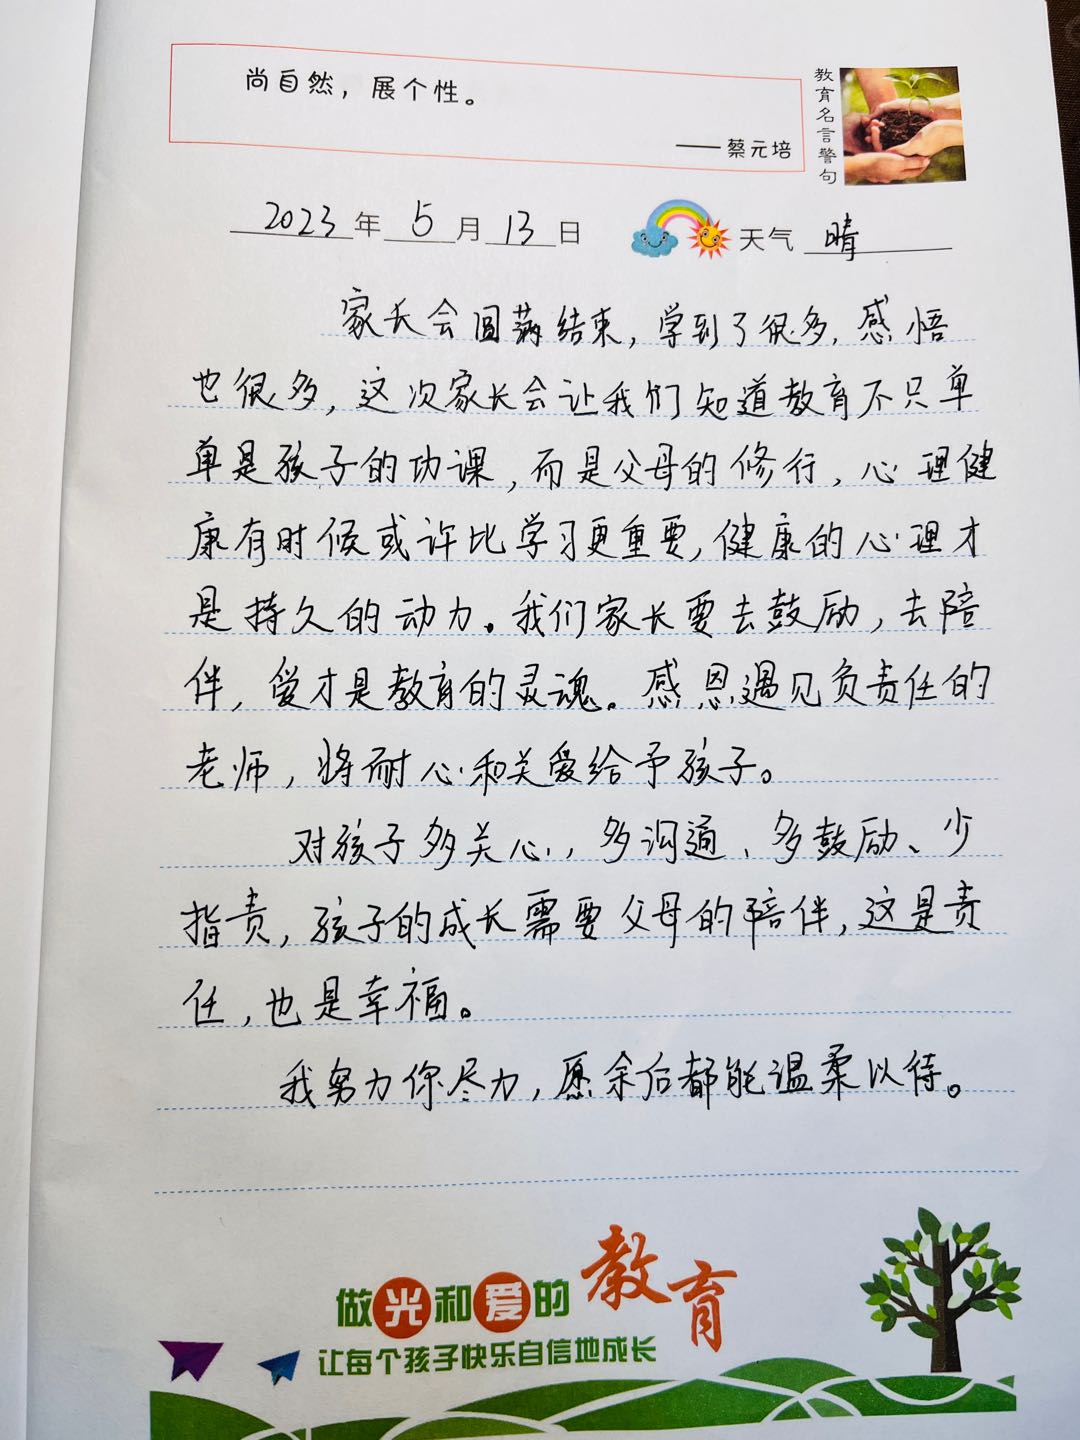 尚自然，展个性。
——蔡元培
教育名言警句
2023年5月13日 天气 晴
家长会圆满结束，学到了很多，感悟
也很多，这次家长会让我们知道教育不只单
单是孩子的功课，而是父母的修行，心理健
康有时候或许比学习更重要，健康的心理才
是持久的动力。我们家长要去鼓励，去陪
伴，爱才是教育的灵魂。感恩遇见负责任的
老师，将耐心和关爱给予孩子。
对孩子多关心，多沟通、多鼓励、少
指责，孩子的成长需要父母的陪伴，这是责
任，也是幸福。
我努力你尽力，愿余后都能温柔以待。
做光和爱的教育
让每个孩子快乐自信地成长